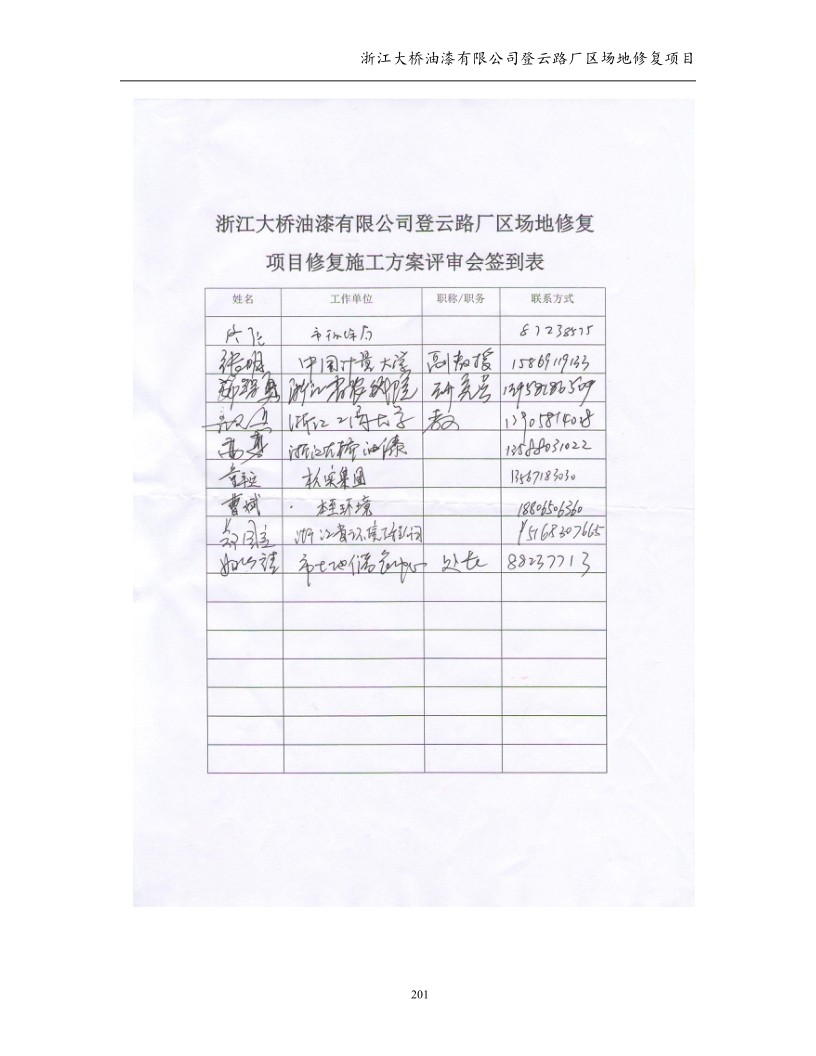 浙江大桥油漆有限公司登云路厂区场地修复项目
浙江大桥油漆有限公司登云路厂区场地修复
项目修复施工方案评审会签到表
姓名 工作单位 职称/职务 联系方式
87238575
中国计量大学 副教授 15869119133
浙江省农科院 研究员
浙江工商大学 教 13905814028
浙江大桥油漆 13588031022
杭实集团 13567183030
曹斌 环境 18806506360
浙江省环境工程公司 15168307665
处长 88237713
201